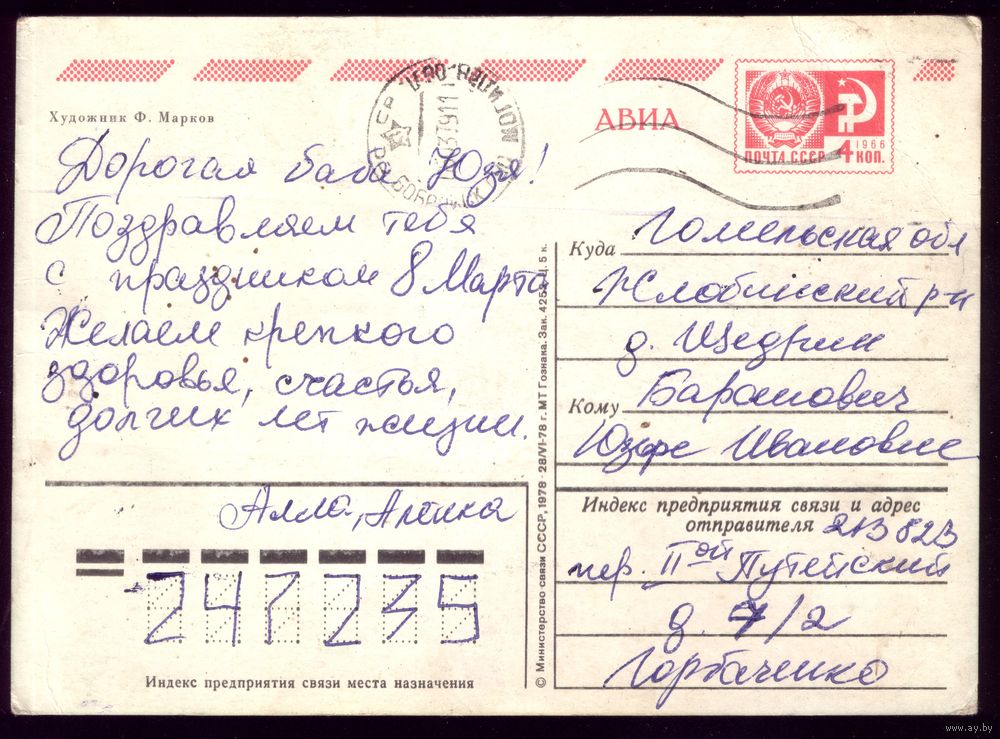 Художник Ф. Марков
АВИА
ПОЧТА СССР 4 КОП.
1966
Дорогая баба Юзя!
Поздравляем тебя
с праздником 8 Марта
Желаем крепкого
здоровья, счастья,
долгих лет жизни.
Алла, Аленка
247235
Индекс предприятия связи места назначения
© Министерство связи СССР, 1978 - 28/VI-78 г. МТ Гознака. Зак. 4253. Ц. 5 к.
Куда Гомельская обл
Жлобинский р-н
д. Щедрин
Кому Баранович
Юзефе Ивановне
Индекс предприятия связи и адрес
отправителя 213823
пер. II ой Путейский
д. 7/2
Горбаченко
www.ay.by